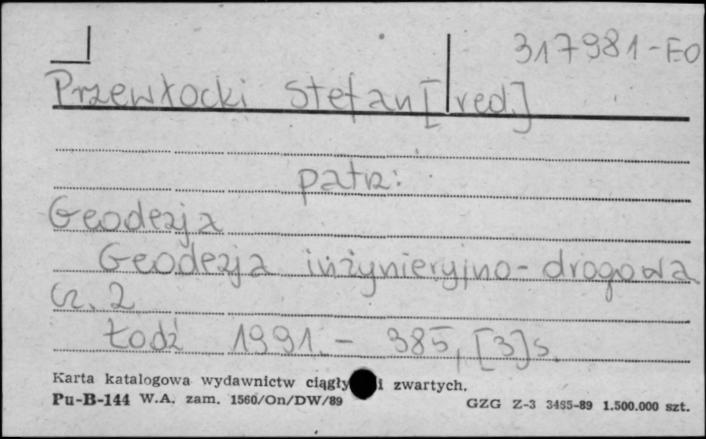 317981-EO
Przewłocki Stefan [red.]
patrz:
Geodezja
Geodezja inżynieryjno-drogowa
Cz. 2
Łódź 1991. - 385, [3] s.
Karta katalogowa wydawnictw ciągły i zwartych.
Pu-B-144 W.A. zam. 1560/On/DW/89 GZG Z-3 3485-89 1.500.000 szt.